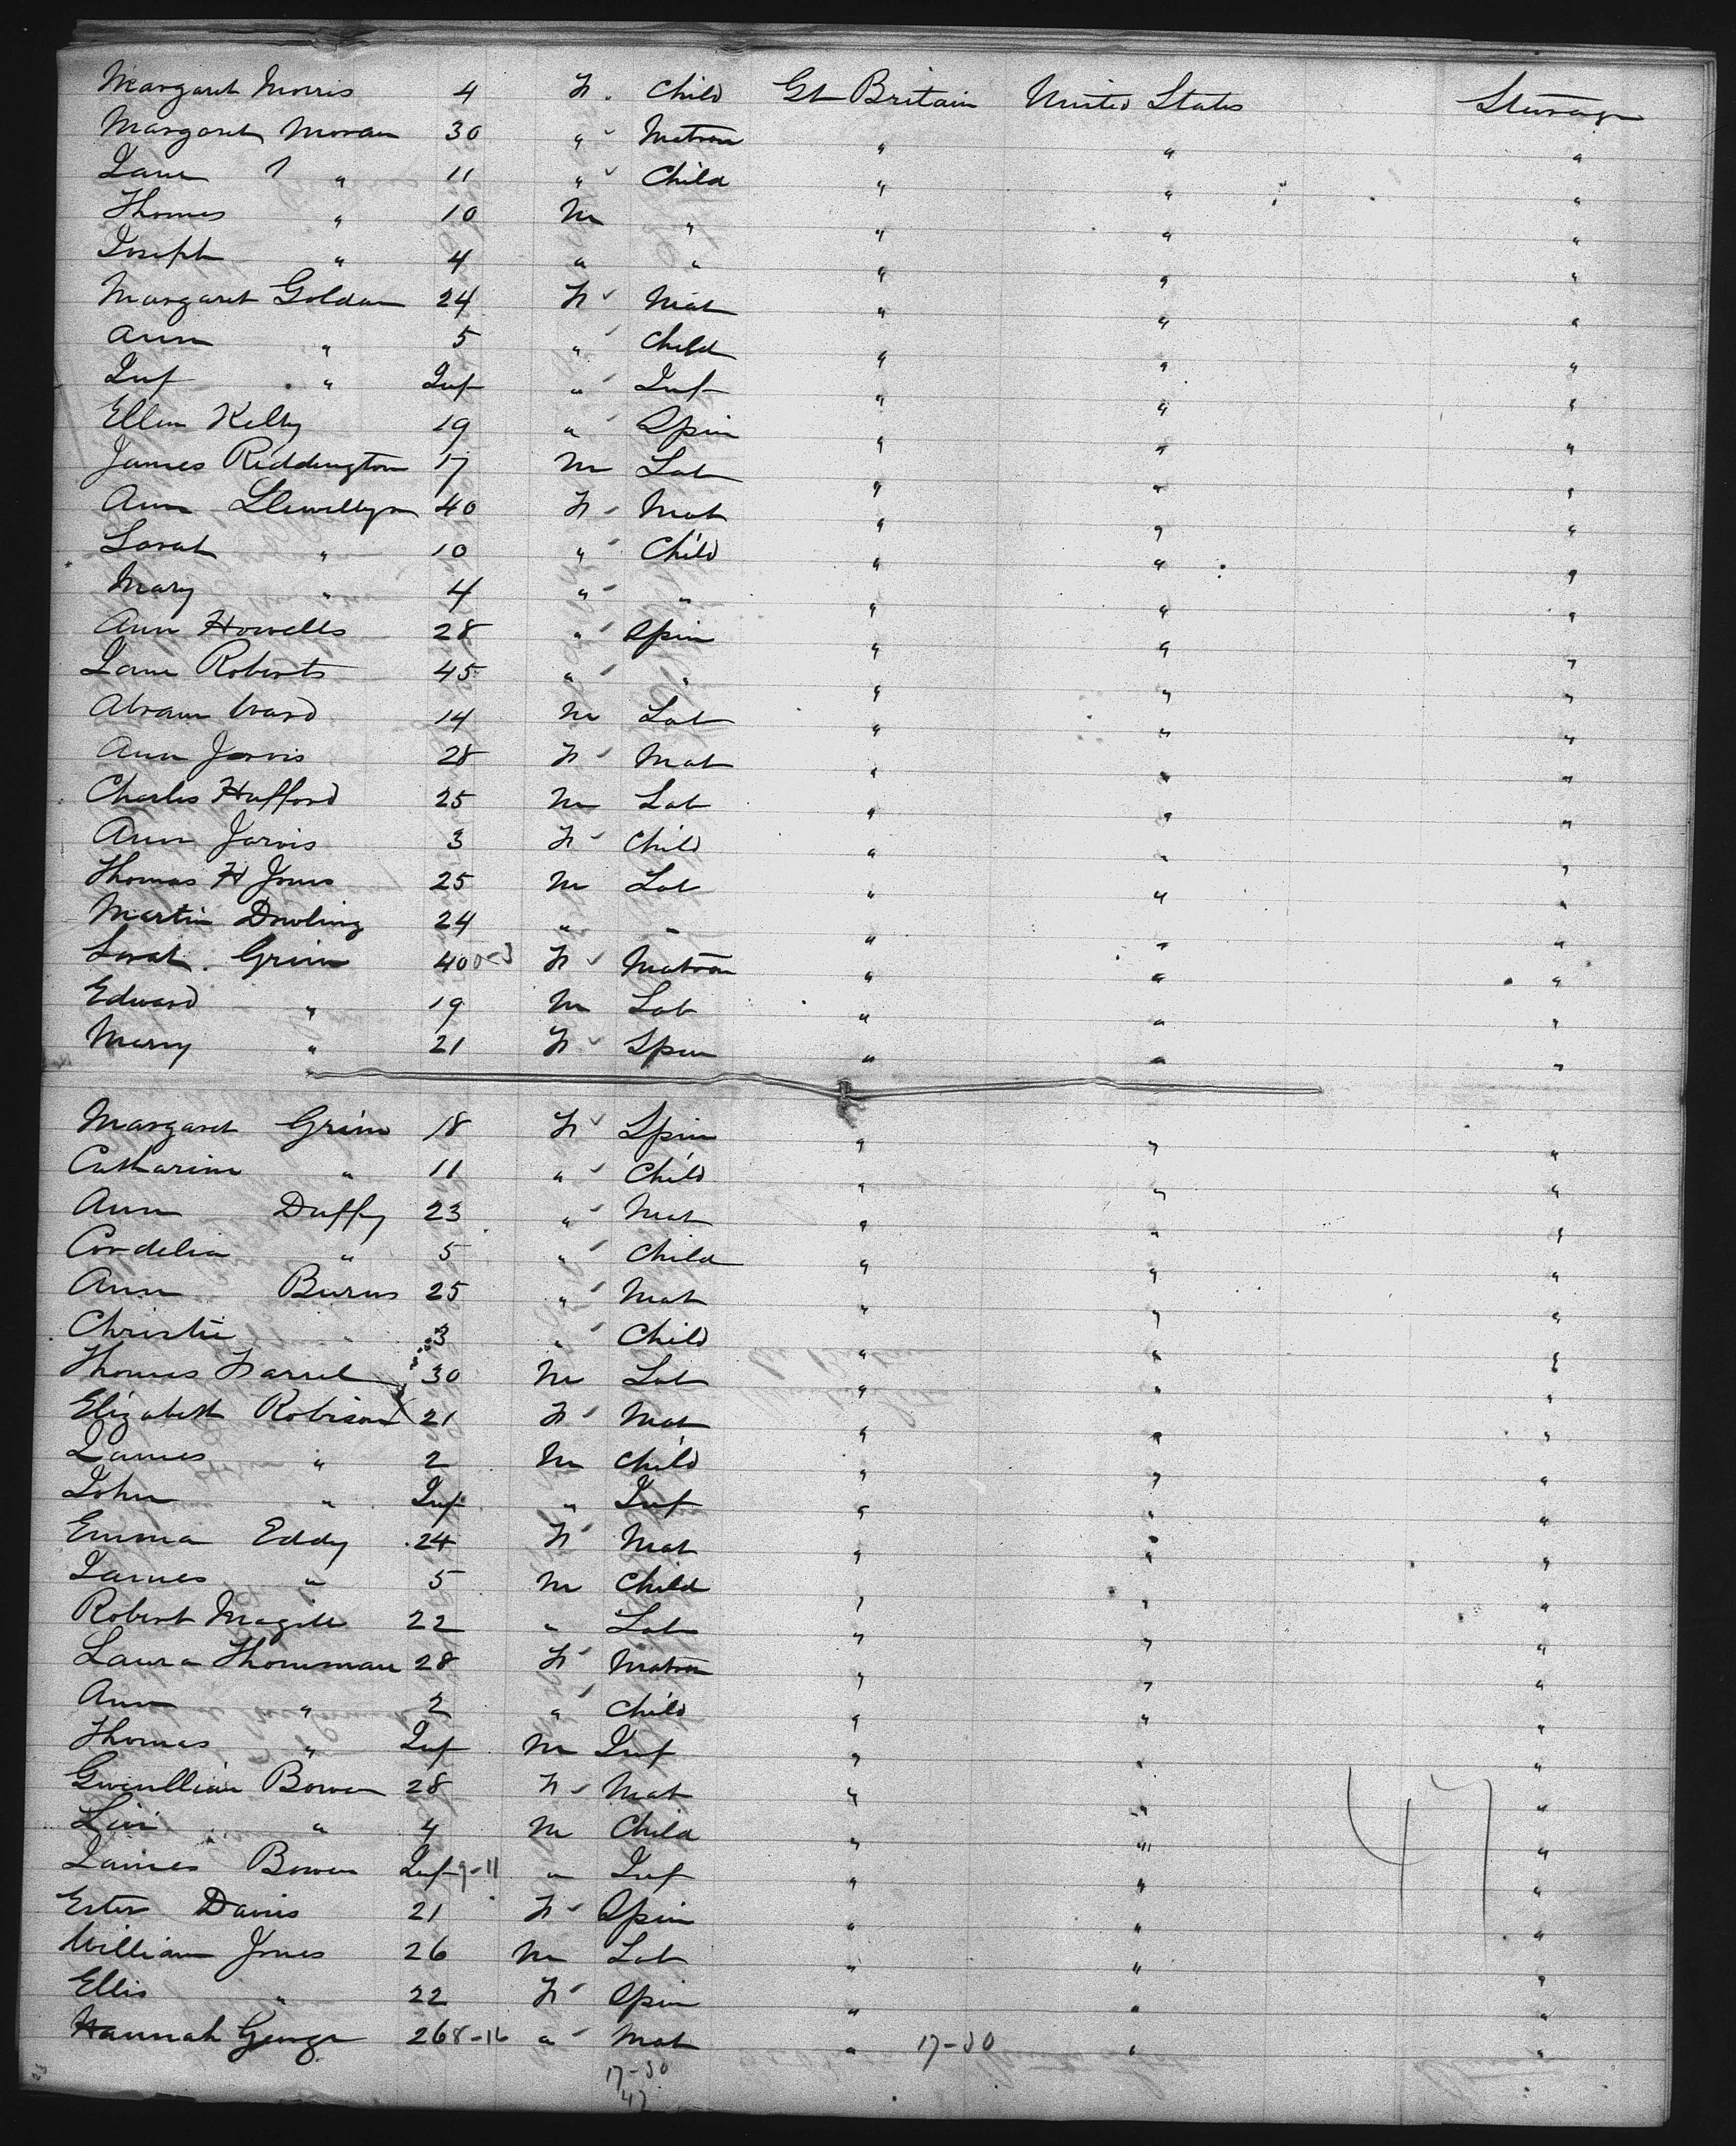 Margaret Morris 4 F. Child Gt Britain United States Steerage
Margaret Moran 30 " Matron " " "
Jane " 11 " Child " " "
Thomas " 10 M " " " "
Joseph " 4 " " " " "
Margaret Goldan 24 F Mat " " "
Ann " 5 " Child " " "
Inf " Inf " Inf " " "
Ellen Kelly 19 " Spin " " "
James Riddington 17 M Lab " " "
Ann Llewellyn 40 F Mat " " "
Sarah " 10 " Child " " "
Mary " 4 " " " " "
Ann Howells 28 " Spin " " "
Jane Roberts 45 " " " " "
Abram Ward 14 M Lab " " "
Ann Jarvis 28 F Mat " " "
Charles Hufford 25 M Lab " " "
Ann Jarvis 3 F Child " " "
Thomas H Jones 25 M Lab " " "
Martin Dowling 24 " " " " "
Sarah Grim 40 0-3 F Matron " " "
Edward " 19 M Lab " " "
Mary " 21 F Spin " " "
Margaret Grim 18 F Spin " " "
Catharine " 11 " Child " " "
Ann Duffy 23 " Mat " " "
Cordelia " 5 " Child " " "
Ann Burns 25 " Mat " " "
Christie " 3 " Child " " "
Thomas Farrel 30 M Lab " " "
Elizabeth Robison 21 F Mat " " "
James " 2 M Child " " "
John " Inf " Inf " " "
Emma Eddy 24 F Mat " " "
James " 5 M Child " " "
Robert Magill 22 " Lab " " "
Laura Thomman 28 F Matron " " "
Ann " 2 " Child " " "
Thomas " Inf M Inf " " "
Gwenllian Bowen 28 F Mat " " "
Levi " 4 M Child " " "
James Bowen Inf 9-11 " Inf " " "
Ester Davis 21 F Spin " " "
William Jones 26 M Lab " " "
Ellis " 22 F Spin " " "
Hannah George 26 8-16 " Mat " 17-30 " "
17-30
47
47